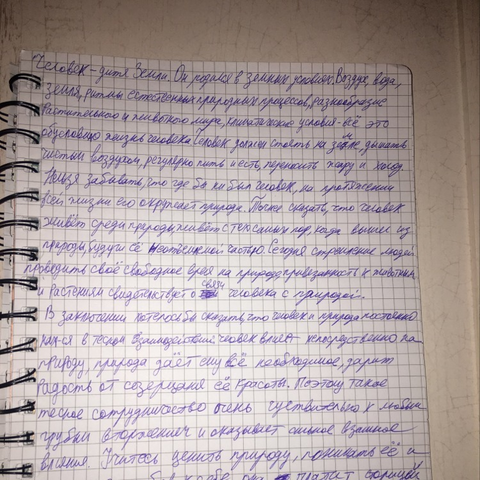 Человек - дитя Земли. Он родился в земных условиях. Воздух, вода,
земля, ритмы естественных природных процессов, разнообразие
растительного и животного мира, климатические условия - всё это
обусловило жизнь человека. Человек должен стоять на земле, дышать
чистым воздухом, регулярно пить и есть, переносить жару и холод.
Нельзя забывать, что где бы ни был человек, на протяжении
всей жизни его окружает природа. Можно сказать, что человек
живёт среди природы живёт с тех самых пор, когда вышел из
природы, будучи её неотъемлемой частью. Сегодня стремление людей
проводить своё свободное время на природе, привязанность к животным
и растениям свидетельствует о связи человека с природой.
В заключении хотелось бы сказать, что человек и природа постоянно
нах-ся в тесном взаимодействии: человек влияет непосредственно на
природу, природа даёт ему всё необходимое, дарит
радость от созерцания её красоты. Поэтому такое
тесное сотрудничество очень чувствительно к любым
грубым вторжениям и оказывает сильное взаимное
влияния. Учитесь ценить природу, понимать её и
она платит